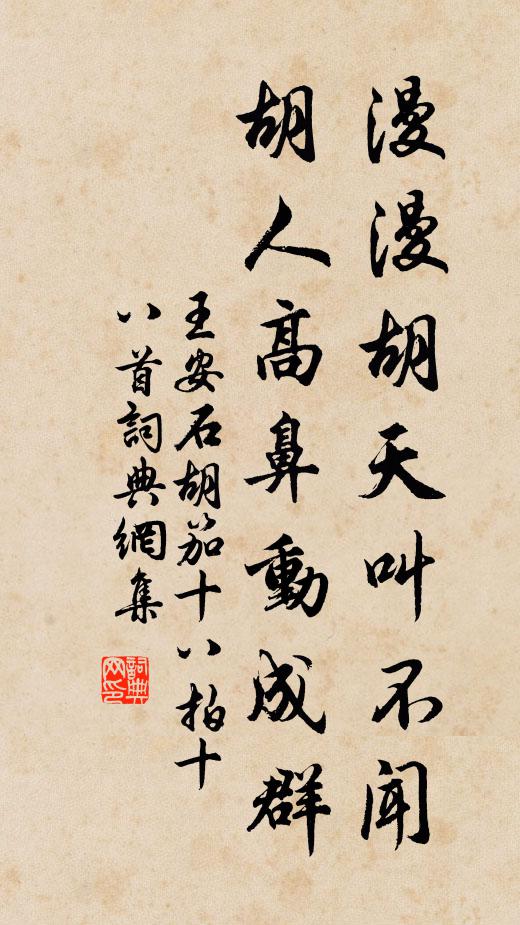 漫漫胡天叫不聞
胡人高鼻動成群
王安石胡笳十八拍十
八首詞典網集
詞典网印